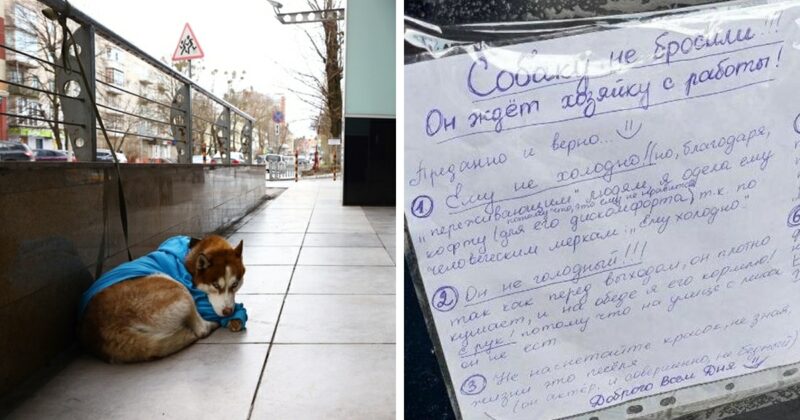 Собаку не бросили!!!
Он ждёт хозяйку с работы!
Преданно и верно...
① Ему не холодно!! (но, благодаря,
„переживающим" людям я одела ему
потому что, это ему не нравится
кофту (для его дискомфорта) т.к. по
человеческим меркам: „ему холодно".
② Он не голодный!!!
так как перед выходом, он плотно
кушает, и на обеде я его кормлю!
с рук! потому что на улице с песка
он не ест.
③ Не нагнетайте красок, не зная,
жизни это песеля.
(он актёр, и совершенно не бедный)
Доброго Всем Дня